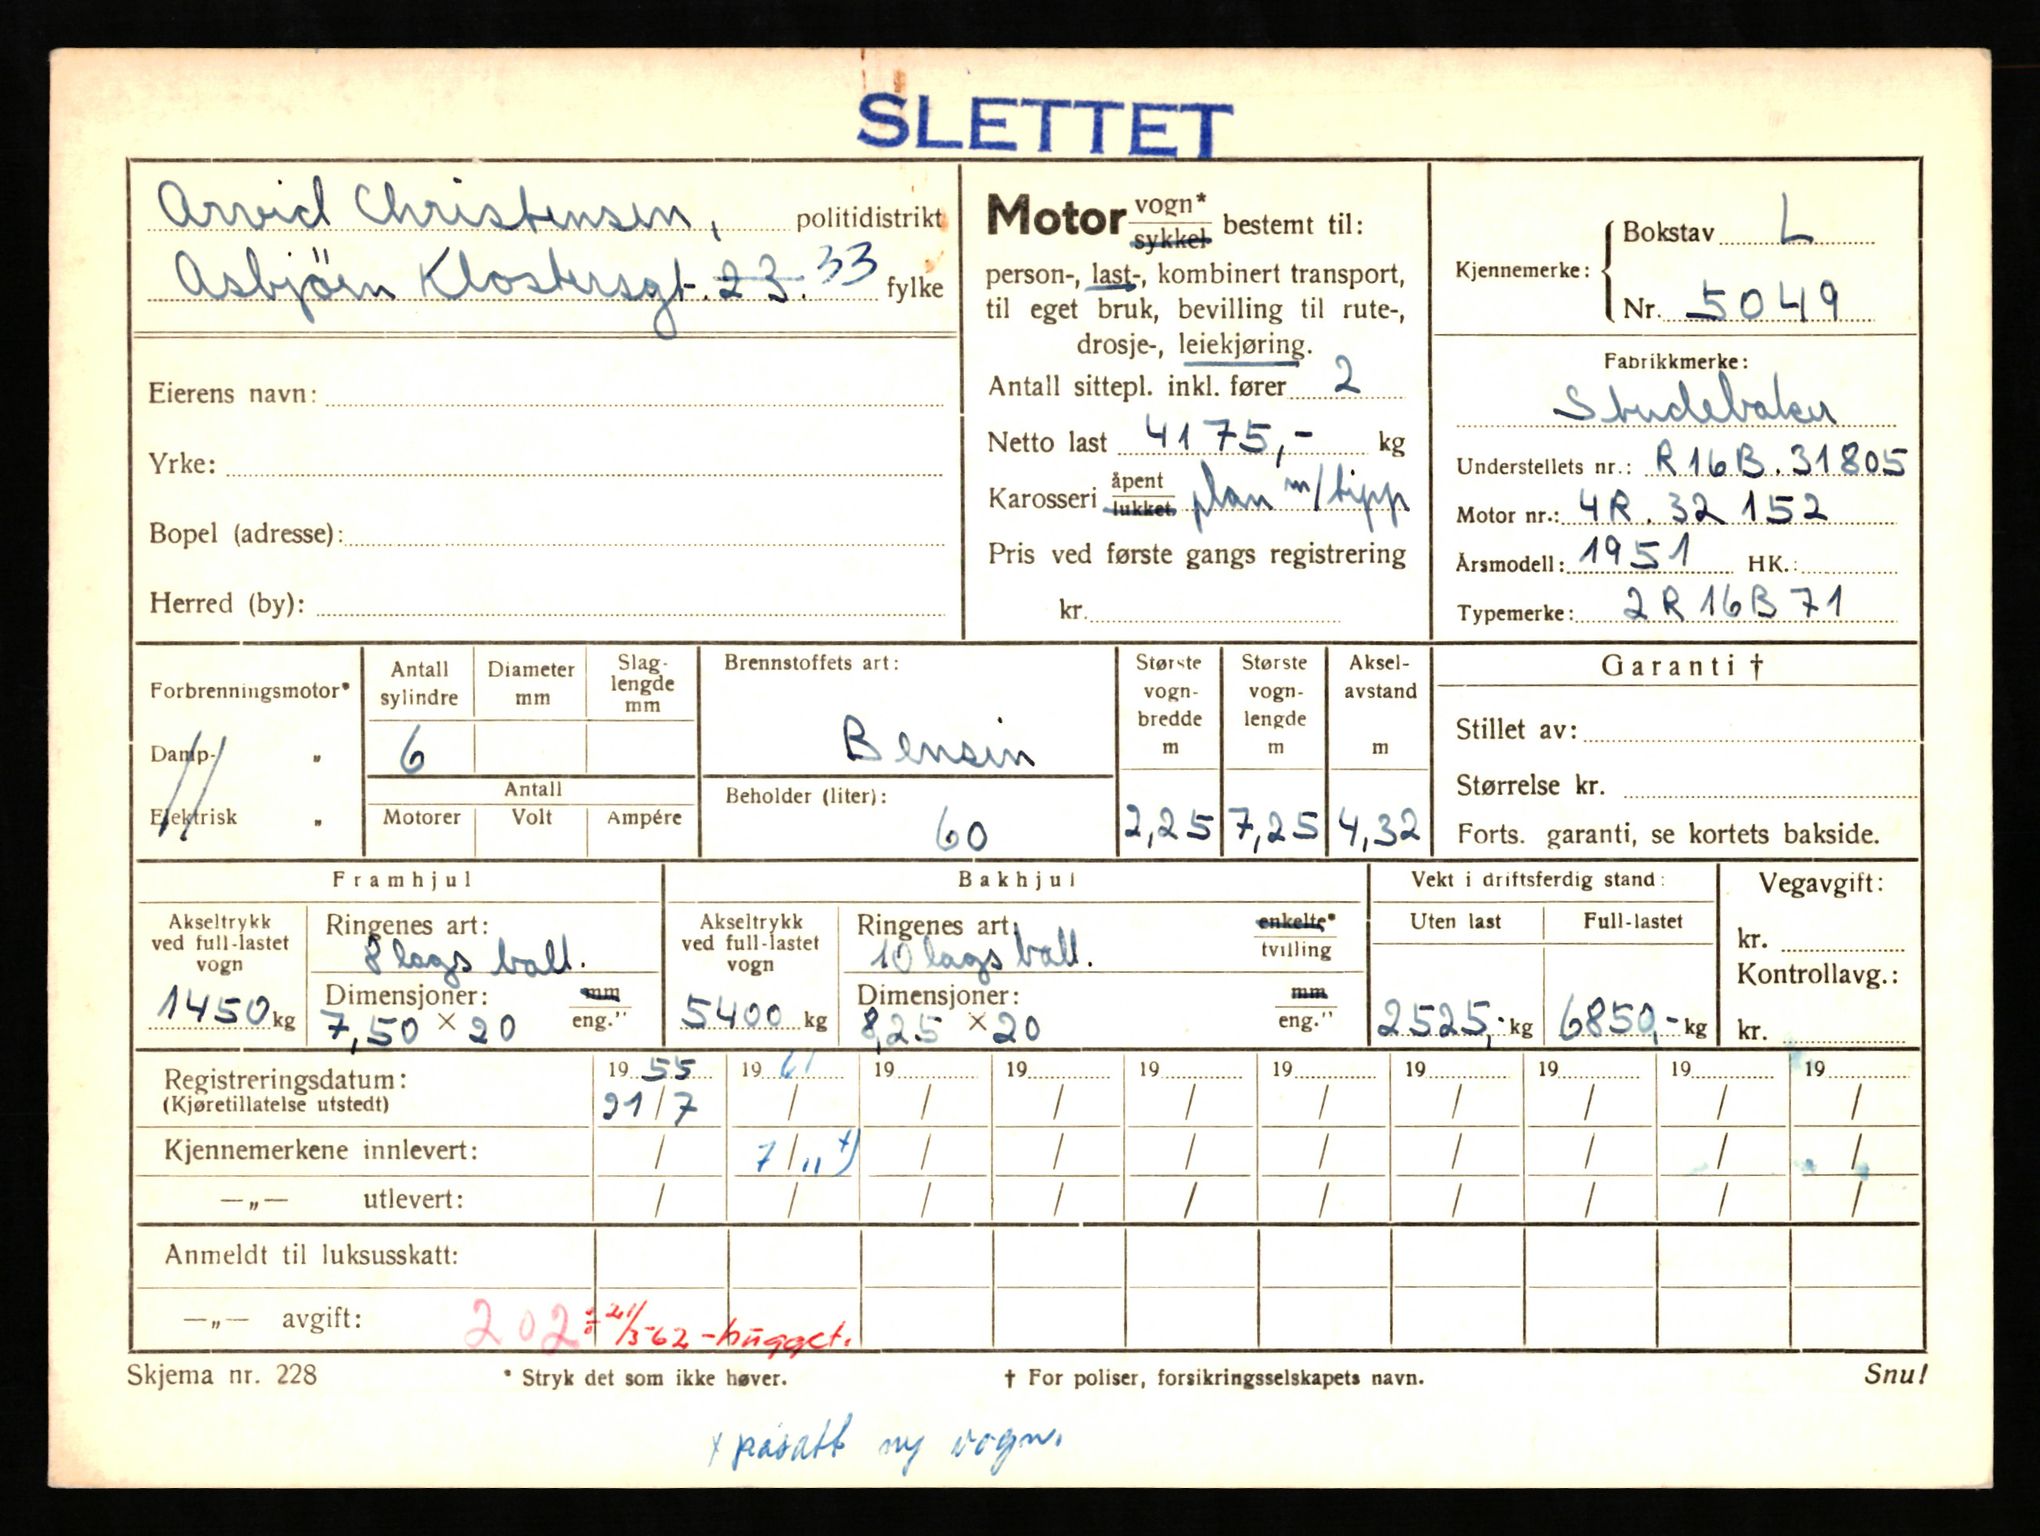 SLETTET
Arvid Christensen, politidistrikt
Asbjörn Klostersgt. 23. 33 fylke
Eierens navn:
Yrke:
Bopel (adresse):
Herred (by):
Motor vogn* sykkel bestemt til:
person-, last-, kombinert transport,
til eget bruk, bevilling til rute-,
drosje-, leiekjøring.
Antall sittepl. inkl. fører 2
Netto last 4175,- kg
Karosseri åpent lukket plan m/tipp
Pris ved første gangs registrering
kr.
Kjennemerke: Bokstav L
Nr. 5049
Fabrikkmerke:
Studebaker
Understellets nr.: R16B.31805
Motor nr.: 4R.32152
Årsmodell: 1951 HK.:
Typemerke: 2R16B71
Forbrenningsmotor*
Damp- "
Elektrisk "
Antall sylindre
Diameter mm
Slag-lengde mm
6
Antall
Motorer Volt Ampére
Brennstoffets art:
Bensin
Beholder (liter):
60
Største vogn-bredde m
2,25
Største vogn-lengde m
7,25
Aksel-avstand m
4,32
Garanti †
Stillet av:
Størrelse kr.
Forts. garanti, se kortets bakside.
Framhjul
Akseltrykk ved full-lastet vogn
1450 kg
Ringenes art:
8 lags ball.
Dimensjoner: mm eng."
7,50 × 20
Bakhjul
Akseltrykk ved full-lastet vogn
5400 kg
Ringenes art: enkelte* tvilling
10 lags ball.
Dimensjoner: mm eng."
8,25 × 20
Vekt i driftsferdig stand:
Uten last Full-lastet
2525,- kg 6850,- kg
Vegavgift:
kr.
Kontrollavg.:
kr.
Registreringsdatum: 1955 1961 19 19 19 19 19 19 19 19
(Kjøretillatelse utstedt) 21/7 / / / / / / / / /
Kjennemerkene innlevert: / 7/11 +) / / / / / / / /
—„— utlevert: / / / / / / / / / /
Anmeldt til luksusskatt:
—„— avgift: 202 21/5-62 - hugget.
Skjema nr. 228 * Stryk det som ikke høver. † For poliser, forsikringsselskapets navn. Snu!
x påsatt ny vogn.